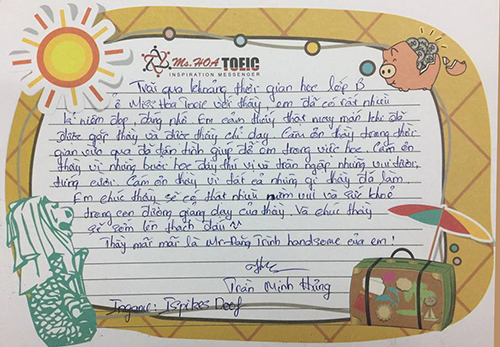 Ms. HOA TOEIC
INSPIRATION MESSENGER
Trải qua khoảng thời gian học lớp B
ở Miss Hoa Toeic với thầy, em đã có rất nhiều
kỉ niệm đẹp, đáng nhớ. Em cảm thấy thật may mắn khi đã
được gặp thầy và được thầy chỉ dạy. Cảm ơn thầy trong thời
gian vừa qua đã tận tình giúp đỡ em trong việc học. Cảm ơn
thầy vì những buổi học đầy thú vị và tràn ngập những vui tươi,
tiếng cười. Cảm ơn thầy vì tất cả những gì thầy đã làm
Em chúc thầy sẽ có thật nhiều niềm vui và sức khoẻ
trong con đường giảng dạy của thầy. Và chúc thầy
sẽ sớm lên thách đấu
Thầy mãi mãi là Mr. Đăng Trình handsome của em!
Trần Minh Hùng
Ingame: